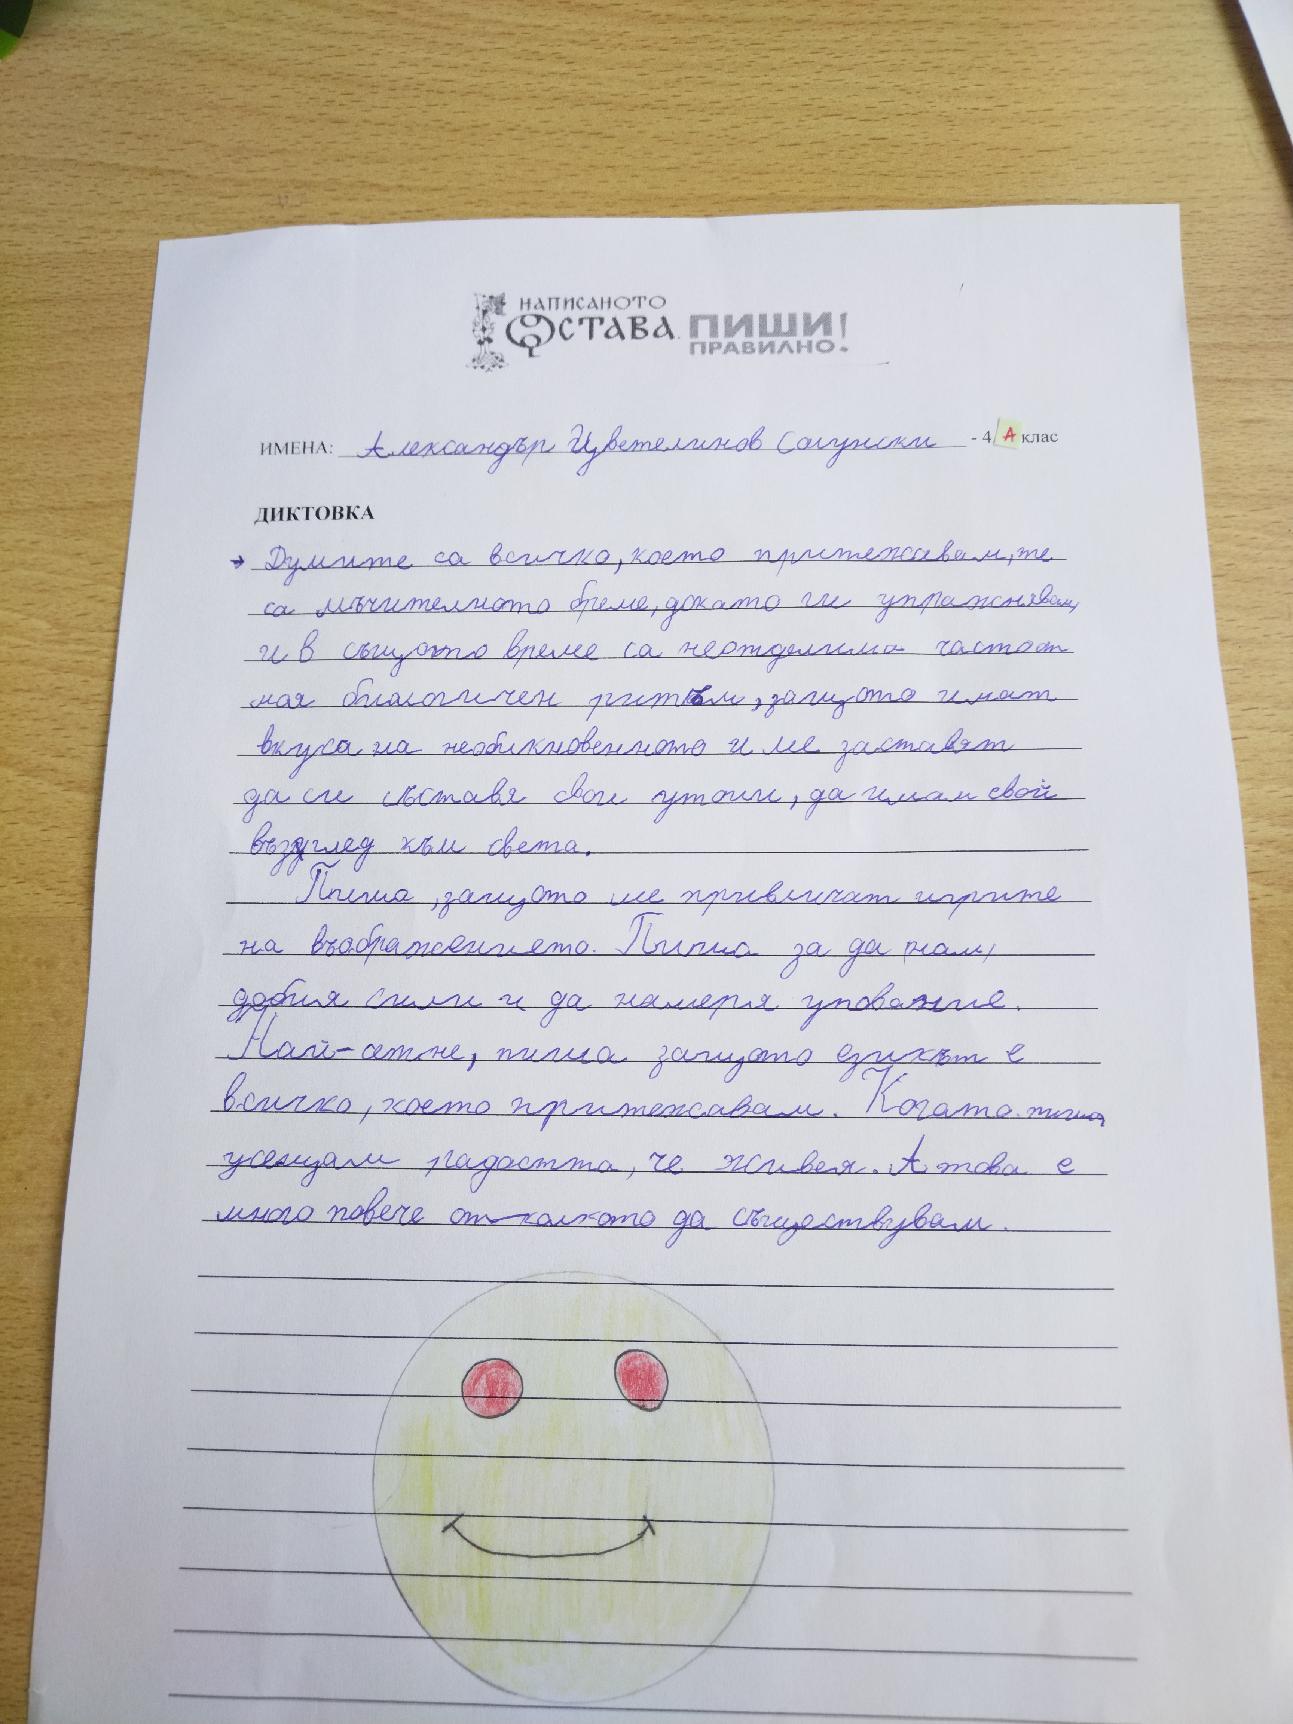 НАПИСАНОТО
ОСТАВА. ПИШИ
ПРАВИЛНО!
ИМЕНА: Александър Цветелинов Сагунски - 4 А клас
ДИКТОВКА
→ Думите са всичко, което притежавам, те
са мъчителното бреме, докато ги упражнявам,
и в същото време са неотделима част от
моя биологичен ритъм, защото имат
вкуса на необикновенното и ме заставят
да си съставя свои утопии, да имам свой
възглед към света.
Пиша, защото ме привличат игрите
на въображението. Пиша за да знам,
добия сили и да намеря упование.
Най-сетне, пиша защото езикът е
всичко, което притежавам. Когато пиша,
усещам радостта, че живея. А това е
много повече отколкото да съществувам.